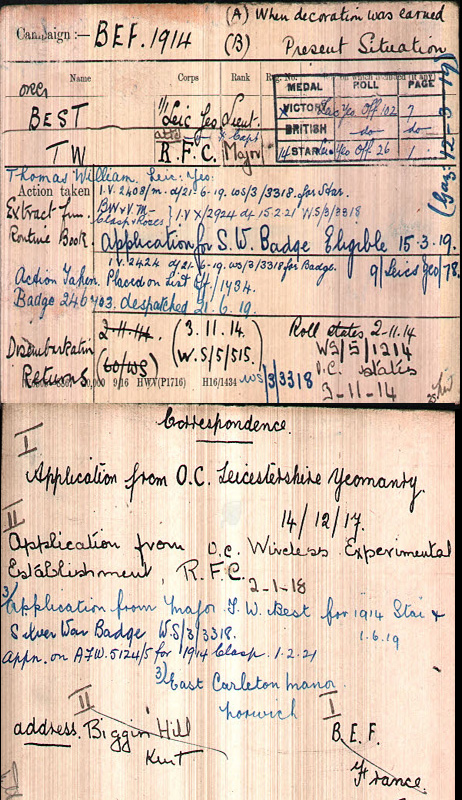 (A) When decoration was earned
Campaign :— B.E.F. 1914
(B) Present Situation
Name Corps Rank Reg. No. on which included (if any)
MEDAL ROLL PAGE
VICTORY Leic Yeo Off 102 7
BRITISH — do — do —
14 STAR Leic Yeo Off 26 1
BEST 1/1 Leic Yeo Lieut.
attd * Capt
T W R.F.C. Major
Thomas William. Leic: Yeo:
Action taken I.V. 2408/m. d/21-6-19. WS/3/3318. for Star.
Extract frm. BW & V M— I.V.X/2924 d/- 15.2.21 W.S/3/3318
Clasp & Roses
Routine Book. Application for S.W. Badge Eligible 15-3-19.
I.V. 2424 d/21-6-19. WS/3/3318 for Badge. 9/Leics Yeo/78.
Action Taken. Placed on List Off/1434.
Badge 246403. despatched 21.6.19.
2-11-14. (3.11.14. Roll states 2-11-14
Disembarkation W.S/5/515.) WS/5/1214
Returns O.C. states
3-11-14
9/16 HWV(P1716) H16/1434 WS/3/3318
Correspondence.
I
Application from O.C. Leicestershire Yeomanry.
14/12/17.
II
Application from O.C. Wireless Experimental
Establishment, R.F.C.
2-1-18
3/ Application from Major T.W. Best for 1914 Star &
Silver War Badge W.S/3/3318. 1.6.19
Appn. on AFW.5124/5 for 1914 Clasp. 1.2.21
3) East Carleton Manor
Norwich
II I
address. Biggin Hill B.E.F.
Kent
France.